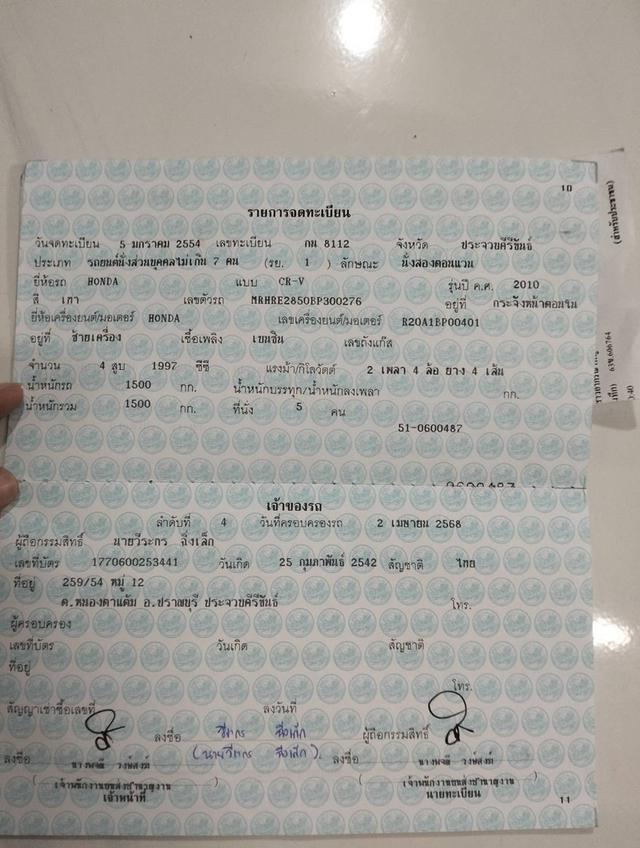 10
รายการจดทะเบียน
วันจดทะเบียน 5 มกราคม 2554 เลขทะเบียน กน 8112 จังหวัด ประจวบคีรีขันธ์
ประเภท รถยนต์นั่งส่วนบุคคลไม่เกิน 7 คน (รย. 1 ) ลักษณะ นั่งสองตอนแวน
ยี่ห้อรถ HONDA แบบ CR-V รุ่นปี ค.ศ. 2010
สี เทา เลขตัวรถ MRHRE2850BP300276 อยู่ที่ กระจังหน้าตอนใน
ยี่ห้อเครื่องยนต์/มอเตอร์ HONDA เลขเครื่องยนต์/มอเตอร์ R20A1BP00401
อยู่ที่ ซ้ายเครื่อง เชื้อเพลิง เบนซิน เลขถังแก๊ส
จำนวน 4 สูบ 1997 ซีซี แรงม้า/กิโลวัตต์ 2 เพลา 4 ล้อ ยาง 4 เส้น
น้ำหนักรถ 1500 กก. น้ำหนักบรรทุก/น้ำหนักลงเพลา กก.
น้ำหนักรวม 1500 กก. ที่นั่ง 5 คน
51-0600487
เจ้าของรถ
ลำดับที่ 4 วันที่ครอบครองรถ 2 เมษายน 2568
ผู้ถือกรรมสิทธิ์ นายวีระกร ฉิ่งเล็ก
เลขที่บัตร 1770600253441 วันเกิด 25 กุมภาพันธ์ 2542 สัญชาติ ไทย
ที่อยู่ 259/54 หมู่ 12
ต.หนองตาแต้ม อ.ปราณบุรี ประจวบคีรีขันธ์ โทร.
ผู้ครอบครอง
เลขที่บัตร วันเกิด สัญชาติ
ที่อยู่
โทร.
สัญญาเช่าซื้อเลขที่ ลงวันที่
ลงชื่อ ผู้ถือกรรมสิทธิ์
ลงชื่อ ลงชื่อ
เจ้าพนักงานขนส่งชำนาญงาน เจ้าพนักงานขนส่งชำนาญงาน
เจ้าหน้าที่ นายทะเบียน
11